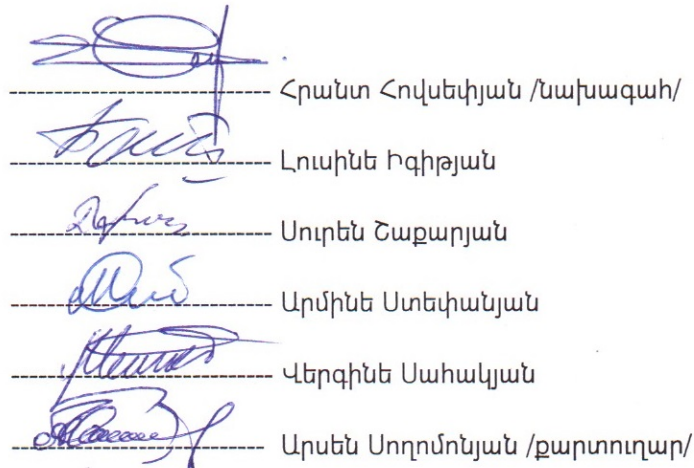 Հրանտ Հովսեփյան /նախագահ/
Լուսինե Իգիթյան
Սուրեն Շաքարյան
Արմինե Ստեփանյան
Վերգինե Սահակյան
Արսեն Սողոմոնյան /քարտուղար/